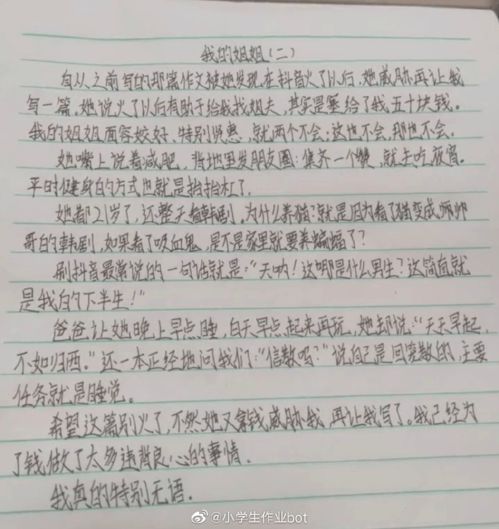 我的姐姐(二)
自从之前写的那篇作文被她发现在抖音火了以后,她威胁再让我
写一篇,她说火了以后有助于给我找姐夫,其实是塞给了我五十块钱。
我的姐姐面容姣好、特别贤惠,就两个不会:这也不会,那也不会。
她嘴上说着减肥,背地里发朋友圈:集齐一个赞,就去吃夜宵。
平时健身的方式也就是抬抬杠了。
她都21岁了,还整天看韩剧,为什么养猫?就是因为看了猫变成帅帅
哥的韩剧,如果看了吸血鬼,是不是家里就要养蝙蝠了?
刷抖音最常说的一句话就是:“天呐!这哪是什么男生?这简直就
是我的下半生!”
爸爸让她晚上早点睡,白天早点起来再玩,她却说:“天天早起,
不如归西。”还一本正经地问我们:“信教吗?”说自己是回笼教的,主要
任务就是睡觉。
希望这篇别火了,不然她又拿钱威胁我,再让我写了。我已经为
了钱做了太多违背良心的事情。
我真的特别无语。
@小学生作业bot